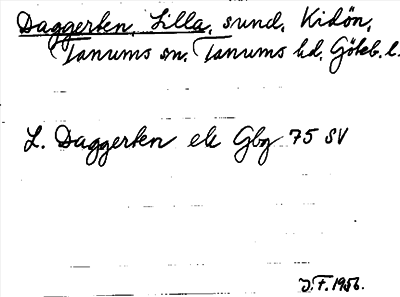 Daggerten, Lilla, sund, Kidön,
Tanums sn. Tanums hd, Göteb. l.
L. Daggerten ek Gbg 75 SV
J.F. 1956.